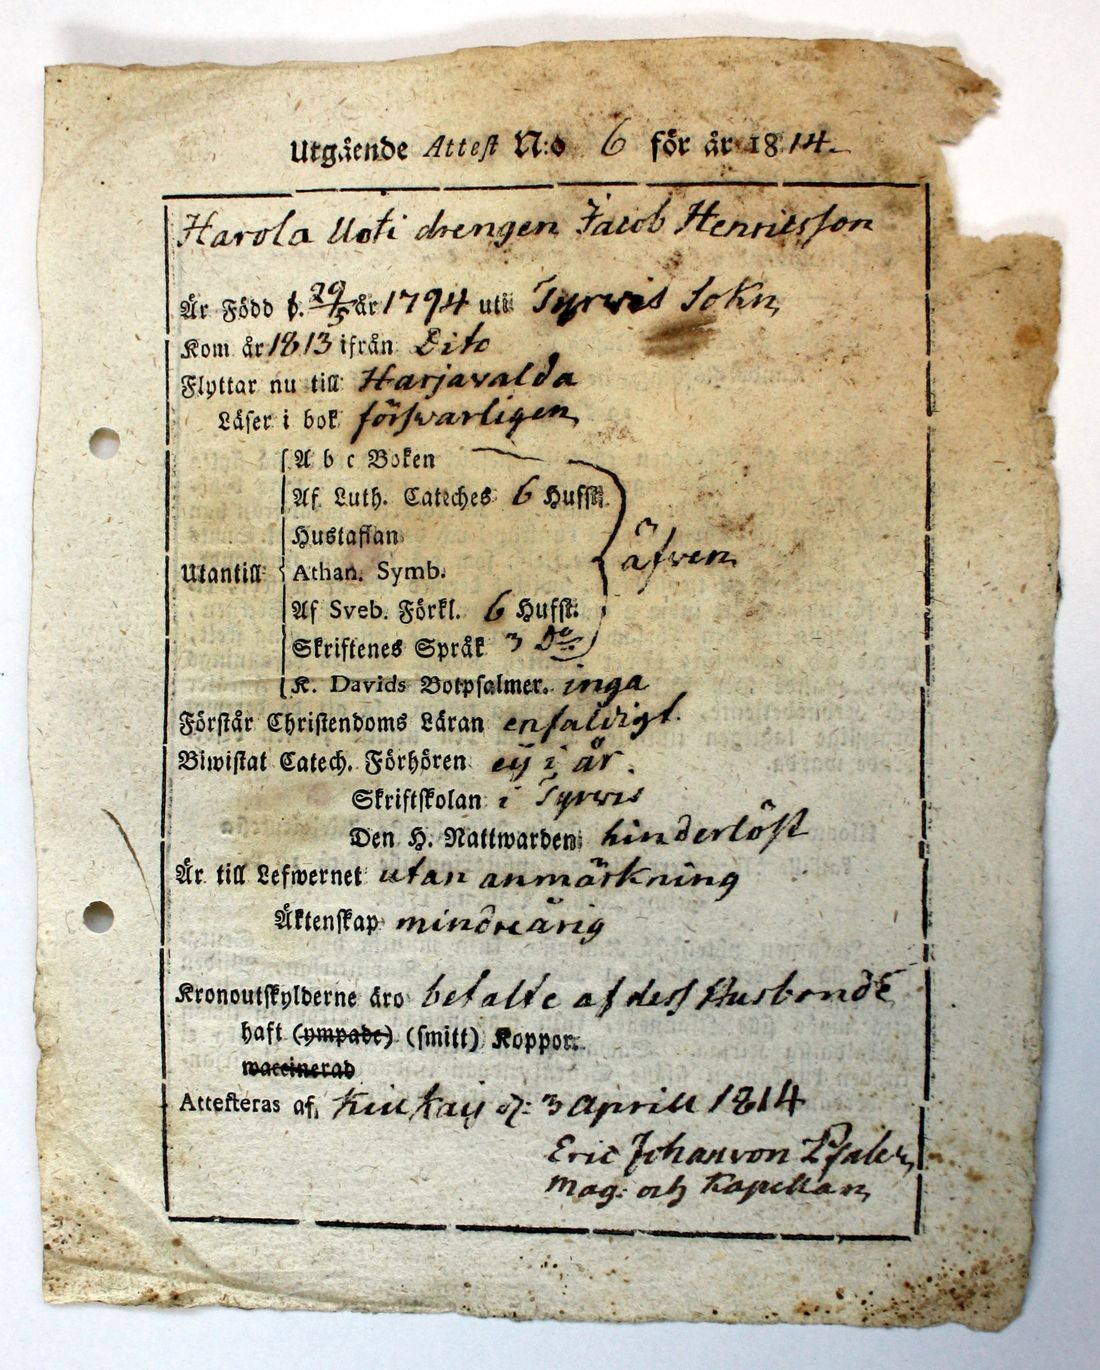 Utgående Attest N:o 6 för år 1814.
Harola Uoti drengen Jacob Henricsson
Är Född d. 29/5 år 1794 uti Tyrwis Sokn
Kom år 1813 ifrån Dito
Flyttar nu till Harjavalda
Läser i bok försvarligen
A b c Boken
Af Luth. Cateches 6 Hufst.
Hustaflan
Utantill Athan. Symb. äfven
Af Sveb. Förkl. 6 Hufst.
Skriftenes Språk 3 Do
K. Davids Botpsalmer. inga
Förstår Christendoms Läran enfaldigt.
Biwistat Catech. Förhören ej i år.
Skriftskolan i Tyrwis
Den H. Nattwarden hinderlöst
Är till Lefwernet utan anmärkning
Äktenskap mindreårig
Kronoutskylderne äro betalte af dess Husbonde
haft (ympade) (smitt) Koppor.
waccinerad
Attesteras af, d. 3 Aprill 1814
Eric Johan von Pfaler
Mag. och Kapellan